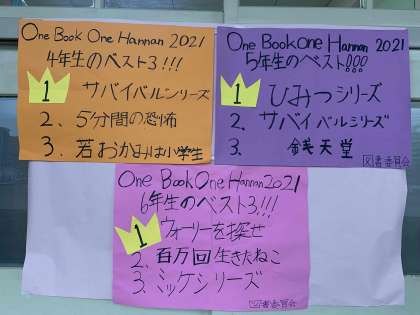 One Book One Hannan 2021
4年生のベスト3!!!
1 サバイバルシリーズ
2. 5分間の恐怖
3. 若おかみは小学生
One Book One Hannan 2021
5年生のベスト!!!
1 ひみつシリーズ
2. サバイバルシリーズ
3. 銭天堂
図書委員会
One Book One Hannan 2021
6年生のベスト3!!!
1 ウォーリーを探せ
2. 百万回生きたねこ
3. ミッケシリーズ
図書委員会